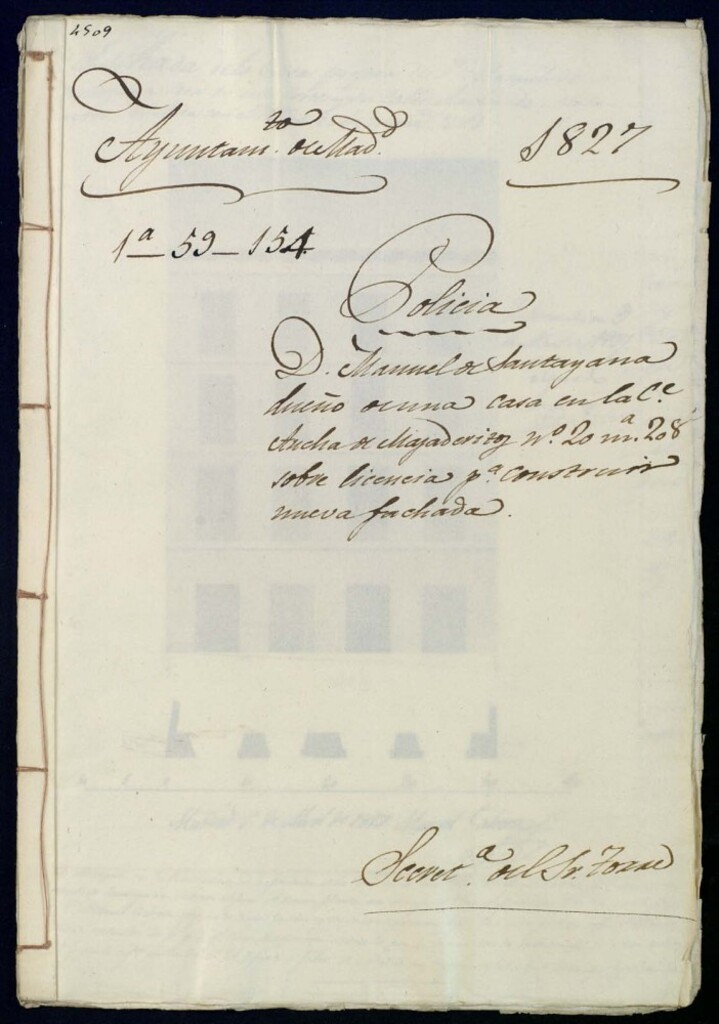 4509
Ayuntam.to de Mad.d
1827
1a_59_154
Policia
D. Manuel de Santayana
dueño de una casa en la C.e
Ancha de Majadericos nº. 20 m.a 208
sobre licencia p.a construir
nueva fachada.
Secret.a del Sr. Torre